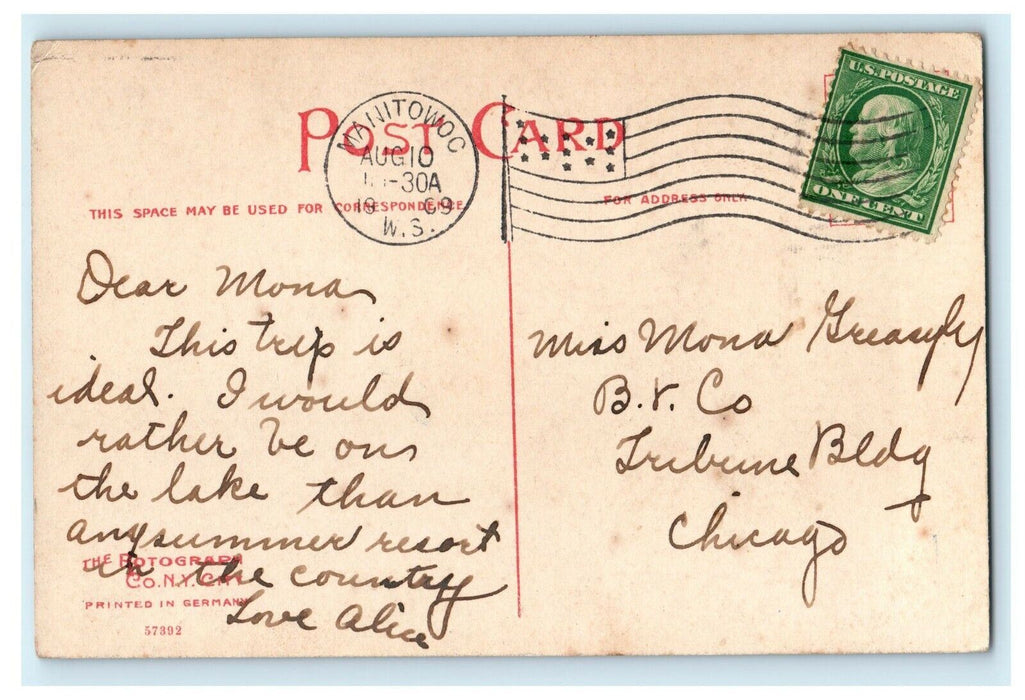 POST CARD
MANITOWOC
AUG 10
-30A
19 09
W.S.
U.S. POSTAGE
ONE CENT
THIS SPACE MAY BE USED FOR CORRESPONDENCE
FOR ADDRESS ONLY
Dear Mona
This trip is
ideal. I would
rather be on
the lake than
any summer resort
in the country
Love Alice
Miss Mona
B. & Co
Tribune Bldg
Chicago
THE ROTOGRAPH
CO. N.Y. CITY
PRINTED IN GERMANY
57392